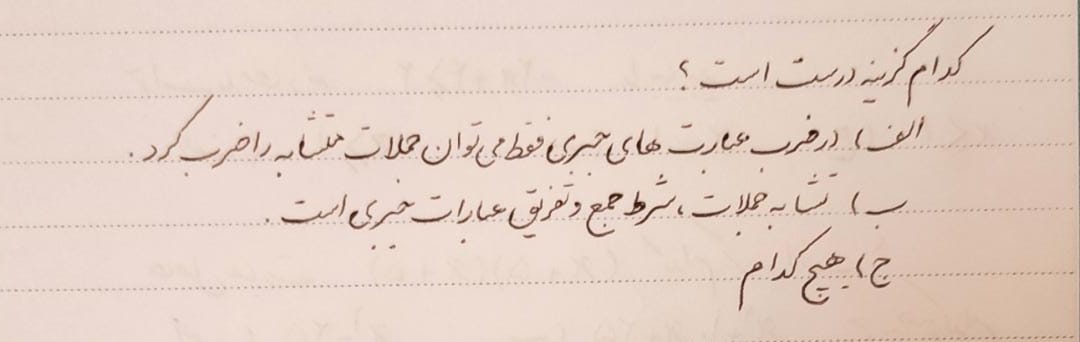 کدام گزینه درست است ؟
الف) در ضرب عبارت های جبری فقط می توان جملات متشابه را ضرب کرد .
ب) تشابه جملات ، شرط جمع و تفریق عبارات جبری است .
ج) هیچ کدام